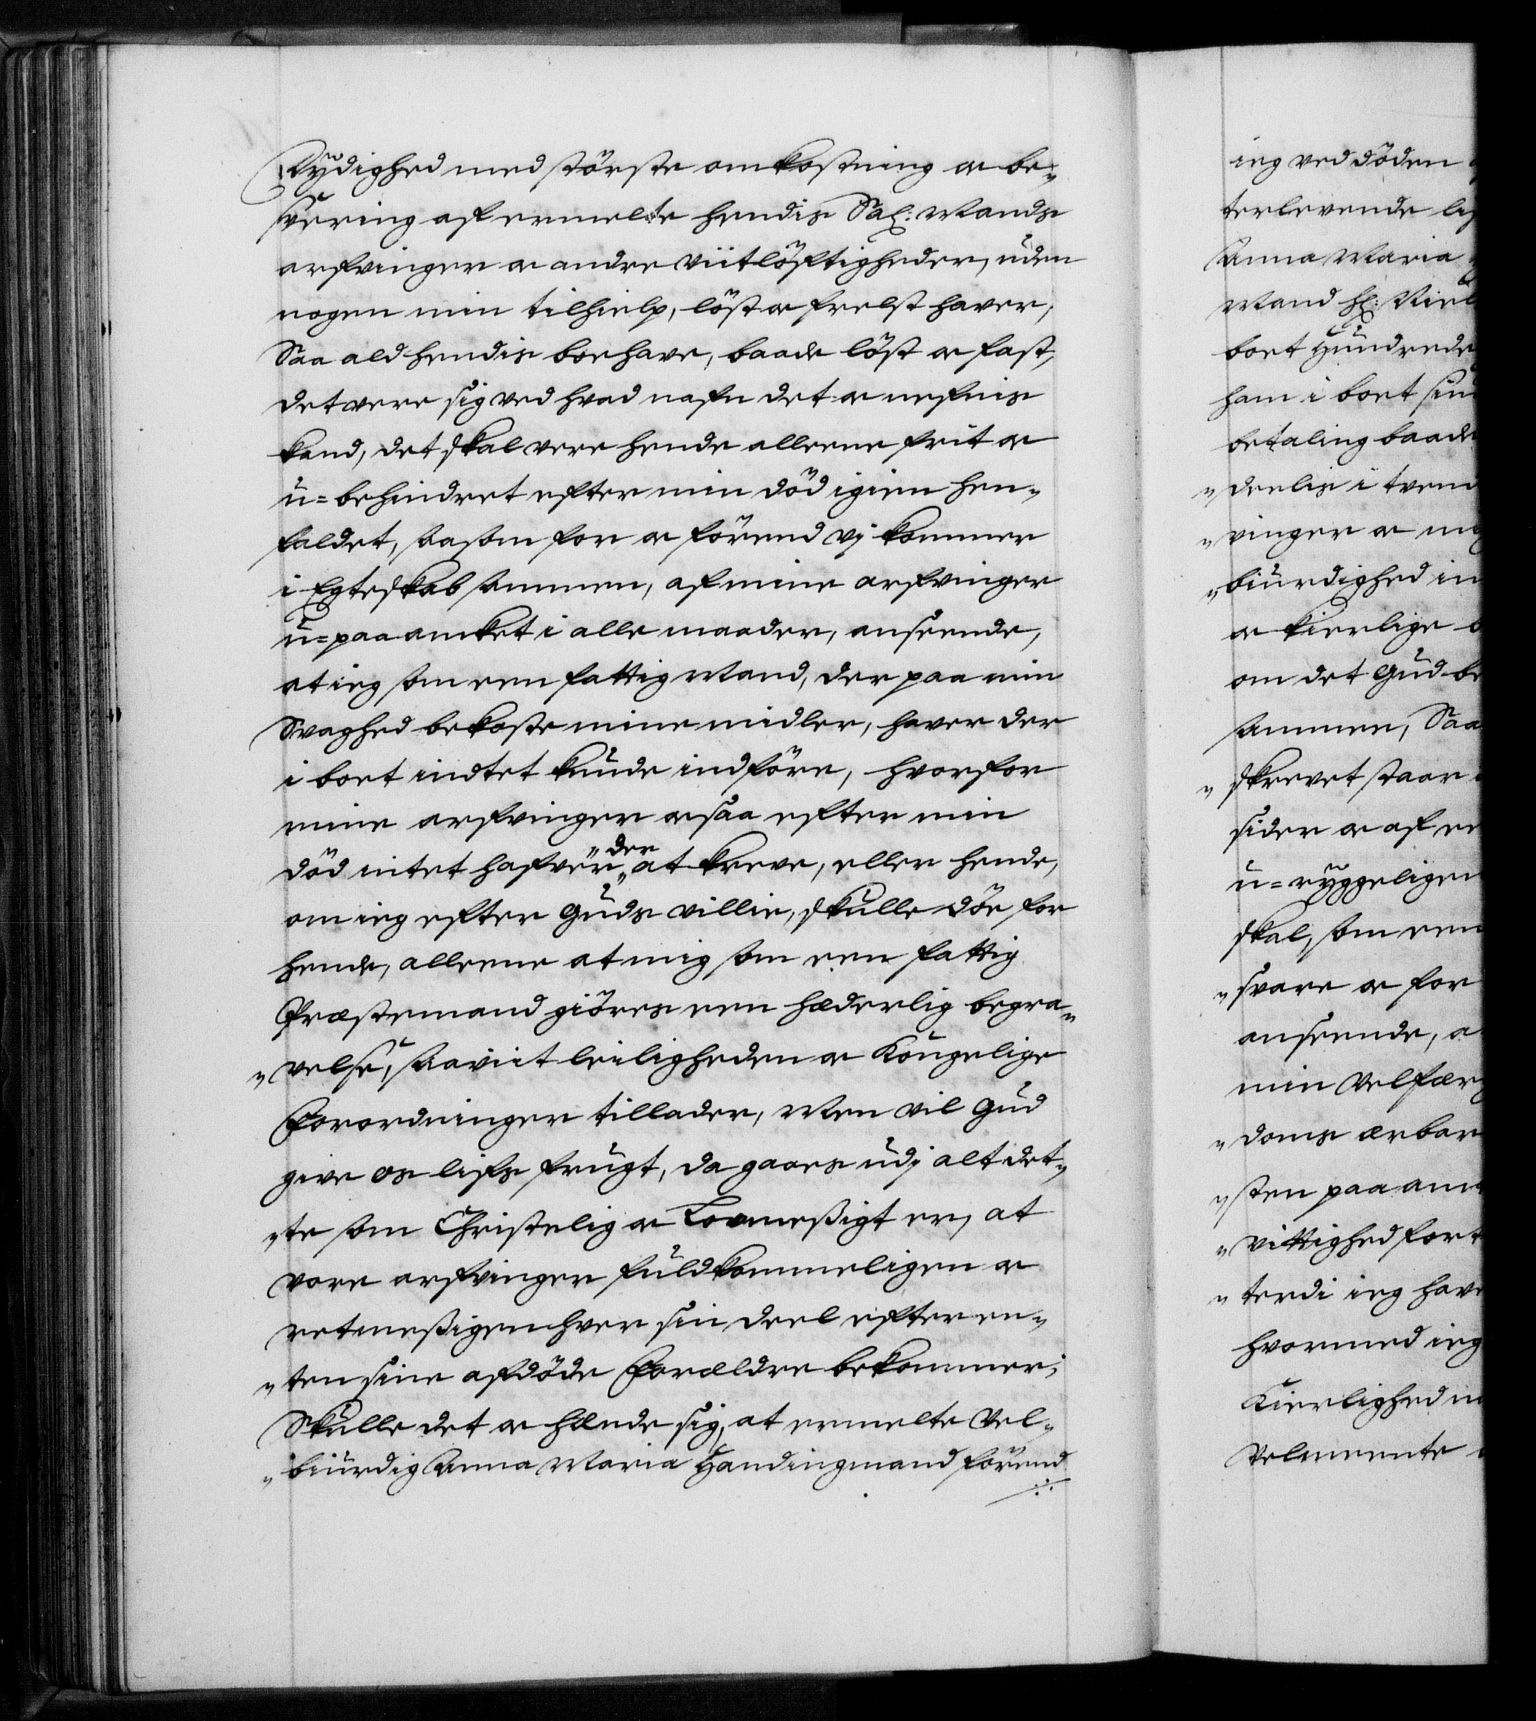 Rÿdighed med störste omkostning oc be¬
svering af ermelte hendis Sal: Mands
arfvinger oc andre viitlöftigheder, uden
nogen min tilhielp, löst oc frelst haver,
Saa ald hendis boehave, baade löst oc fast,
det vere sig ved hvad nafn det oc nefnis
kand, det skal vere hende alleene frit oc
u=behindret efter min död igien hen¬
faldet, saasom for oc förend vj kommer
i Egteskab sammen, af mine arfvinger
u=paaancket i alle maader, anseende,
at ieg som een fattig Mand, der paa min
Svaghed bekoste mine midler, haver der
i boet indtet kunde indföre, hvorfor
mine arfvinger ocsaa efter min
död intet hafver der at kreve, eller hende,
om ieg efter Guds villie, skulle döe for
hende, alleene at mig som een fattig
Præstemand giöres een hæderlig begra¬
velse, saaviit leiligheden oc Kongelige
Forordninger tillader, Men vil Gud
give os lifs frugt, da gaaes udj alt det¬
te som Christelig oc Lovmessigt er, at
vore arfvinger fuldkommeligen oc
retmessigen hver sin deel efter en¬
ten sine afdöde Forældre bekommer;
Skulle det oc hænde sig, at ermelte Vel¬
biurdig Anna Maria Handingmand förend
ieg ved döden
terlevende
Anna Maria
Mand
boet Hundrede
ham i boet
betaling baade
deelis i
vinger oc
biurdighed
oc kierlige
om det Gud
sammen, Saa
skrevet staar
sider oc af
u=ryggeligen
skal, som een
svare oc for
anseende,
min Velfær
doms ærbar
sten paa
vittighed
terdi ieg
hvormed ieg
Kierlighed
Velmeente